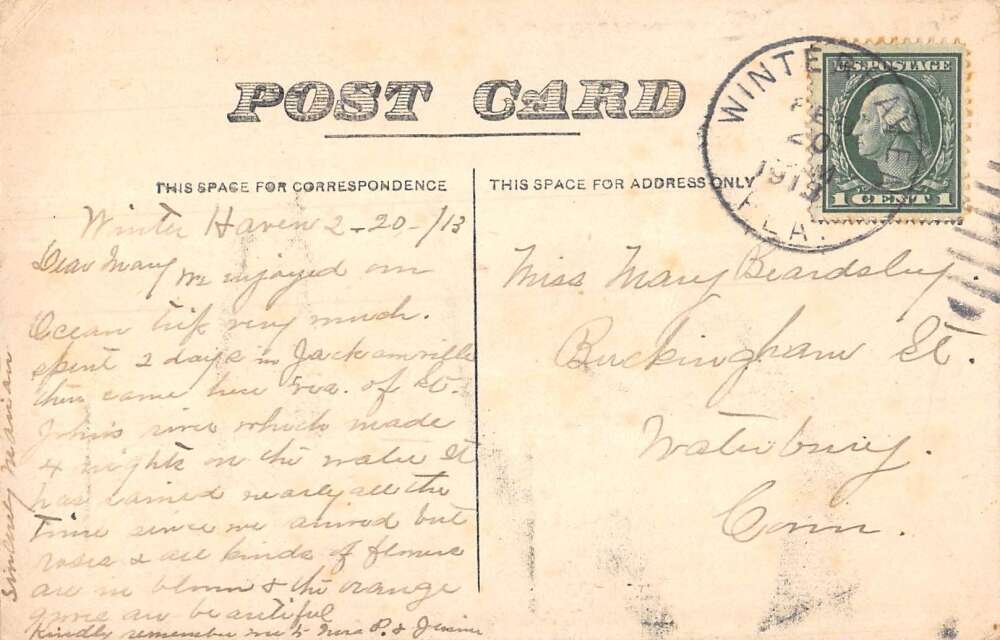 POST CARD
THIS SPACE FOR CORRESPONDENCE
THIS SPACE FOR ADDRESS ONLY
WINTER HAVEN
FEB
20
1913
FLA.
U.S. POSTAGE
1 CENT 1
Winter Haven 2-20-/13
Dear Mary
We enjoyed our
Ocean trip very much.
spent 2 days in Jacksonville
then came here via. of St.
John's river which made
4 nights on the water It
has rained nearly all the
time since we arrived but
roses & all kinds of flowers
are in bloom & the orange
grove are beautiful
Kindly remember me to Mrs P. &
Sincerely Marian
Miss Mary Beardsley.
Buckingham St.
Waterbury.
Conn.